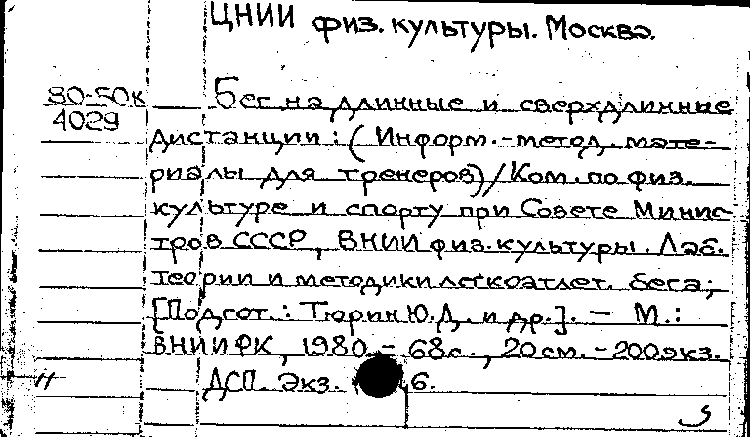 ЦНИИ физ. культуры. Москва.
80-50к
4029
Бег на длинные и сверхдлинные
дистанции : ( Информ.-метод. мате-
риалы для тренеров) / Ком. по физ.
культуре и спорту при Совете Минис-
тров СССР, ВНИИ физ. культуры. Лаб.
теории и методики легкоатлет. бега;
[Подгот.: Тюрин Ю.Д. и др.]. - М.:
ВНИИФК, 1980. - 68с., 20см. - 200экз.
ДСП. Экз. 6.